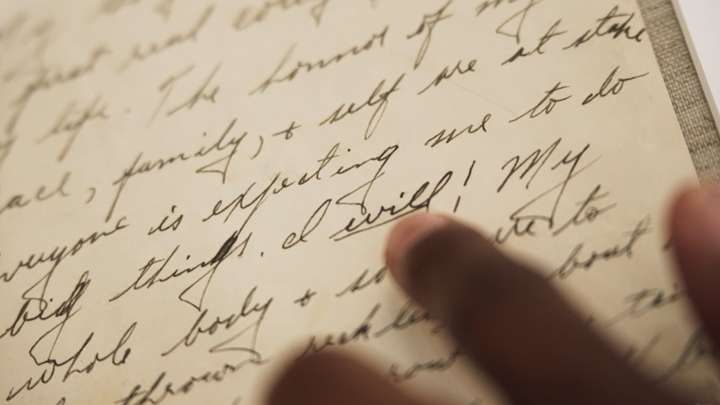 great real
life. The honnor of my
ace, family, + self are at stake
veryone is expecting me to do
big things. I will! My
whole body + so to
thrown reck bout